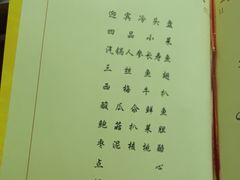 迎宾冷头盘
四品小菜
汽锅人参长寿鱼
三丝鱼翅
西梅牛扒
酸瓜鲜鱼
鲍菇扒菜胆
枣泥核桃酪
点心